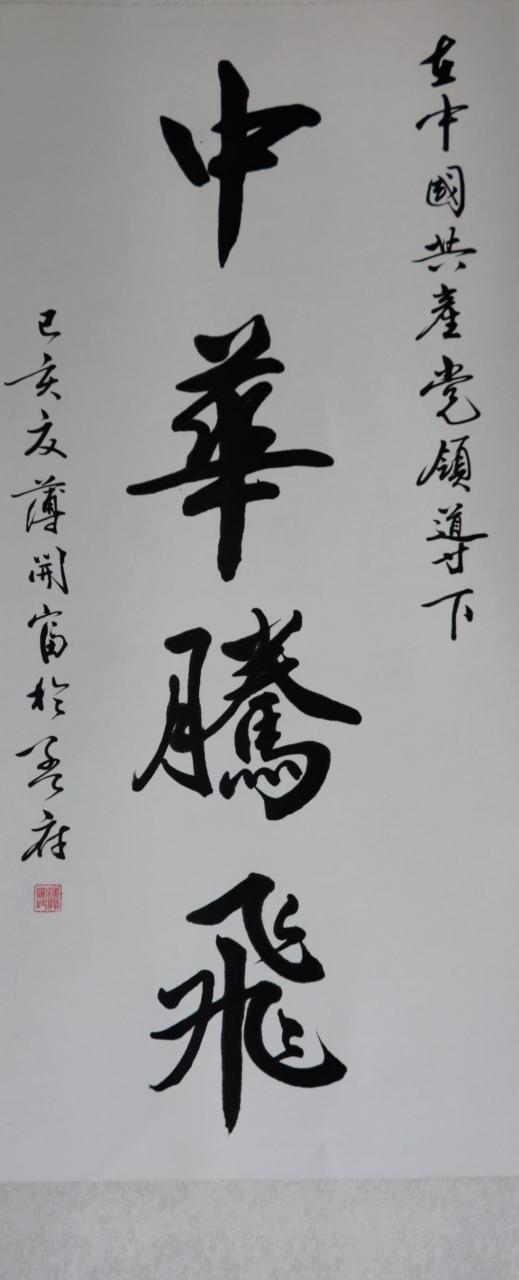 在中國共產党領導下
中華騰飛
己亥友薄開富於孟府